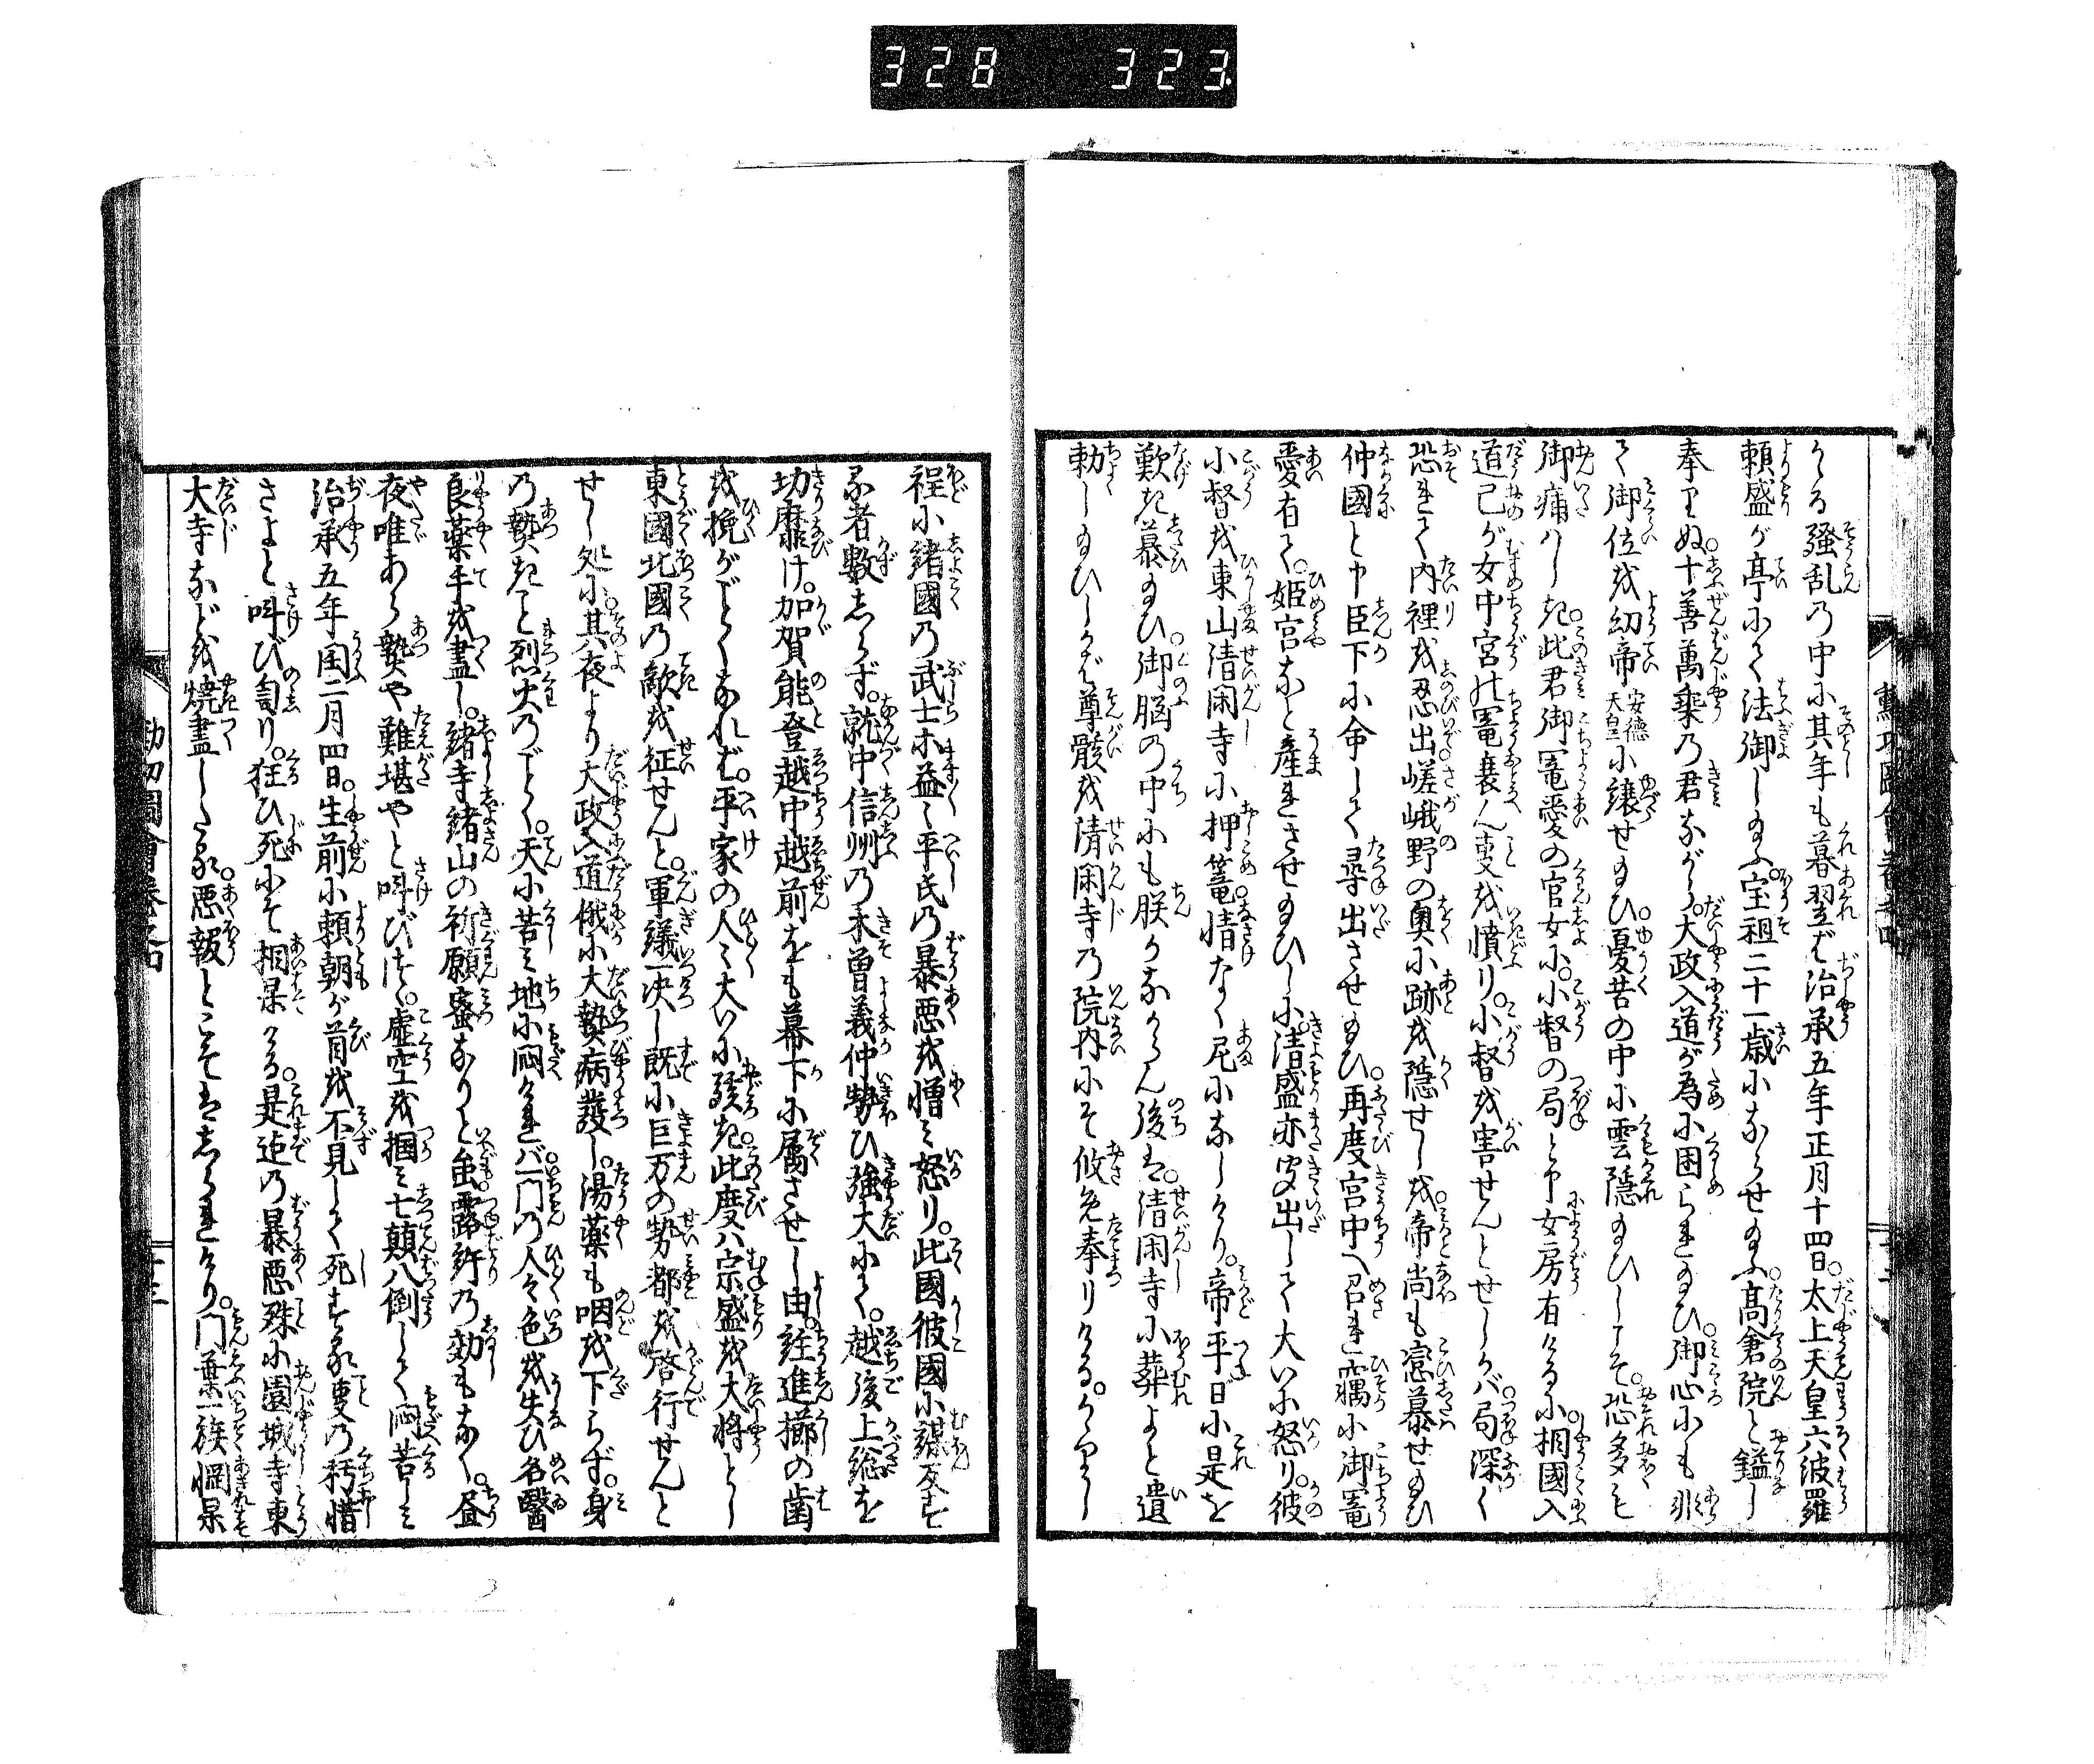 328 323
かる騒乱の中に其年も暮翌ば治承五年正月十四日。太上天皇六波羅
頼盛が亭にて法御し給ふ。宝祖二十一歳にならせ給ふ。高倉院と謚し
奉りぬ。十善萬乗の君ながら。大政入道が為に困られ給ひ。御心にも非
で御位を幼帝安徳天皇に譲せ給ひ。憂苦の中に雲隠給ひしこそ。恐多も
御痛はしき。此君御寵愛の官女に。小督の局と申女房有ける に。相國入
道己が女中宮の寵衰ん事を憤り。小督を害せんとせしかバ。局深く
恐れて内裡を忍出嵯峨野の奥に跡を隠せしを。帝尚も恋慕せ給ひ
仲國と申臣下に命じて尋出させ給ひ。再度宮中へ召れ竊に御寵
愛有て。姫宮など産れさせ給ひしに。清盛亦聞出して大いに怒り。彼
小督を東山清閑寺に押篭。情なく尼になしけり。帝平日に是を
歎き慕給ひ。御脳の中にも朕なからん後は。清閑寺に葬よと遺
勅し給ひしかば尊骸を清閑寺の院内にぞ收め奉りける。かゝりし
程に諸國の武士等益々平氏の暴悪を憎み怒り。此國彼國に謀反す
る者數しらず。就中信州の木曽義仲勢ひ強大にて。越後上総を
切靡け。加賀能登越中越前をも幕下に属させし由。註進櫛の歯
を挽がごとくなれば。平家の人々大いに騒ぎ。此度ハ宗盛を大将とし
東國北國の敵を征せんと。軍議一决し既に巨万の勢都を啓行せんと
せし処に。其夜より大政入道俄に大熱病發し。湯薬も咽を下らず。身
の熱きこと烈火のごとく。天に苦み地に悶けれバ。一門の人々色を失ひ名醫
良薬手を盡し。諸寺諸山の祈願蜜なりと虽。露許の効もなく。昼
夜唯あら熱や難堪やと叫び。虚空を掴み七顛八倒して悶苦しミ
治承五年閏二月四日。生前に頼朝が首を不見して死する事の朽惜
さよと叫び罵り。狂ひ死にぞ相果ける。是迄の暴悪殊に園城寺東
大寺などを焼盡したる。悪報とこそはしられけり。門葉一族惘果